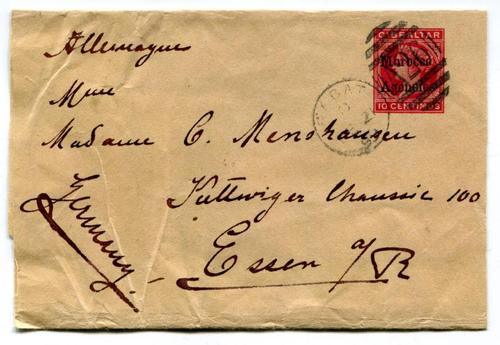 Allemagne
GIBRALTAR
Morocco
Agencies
10 CENTIMOS
Mme
RABAT
Madame C. Menshausen
Kettwiger Chaussée 100
Essen a/R
Germany